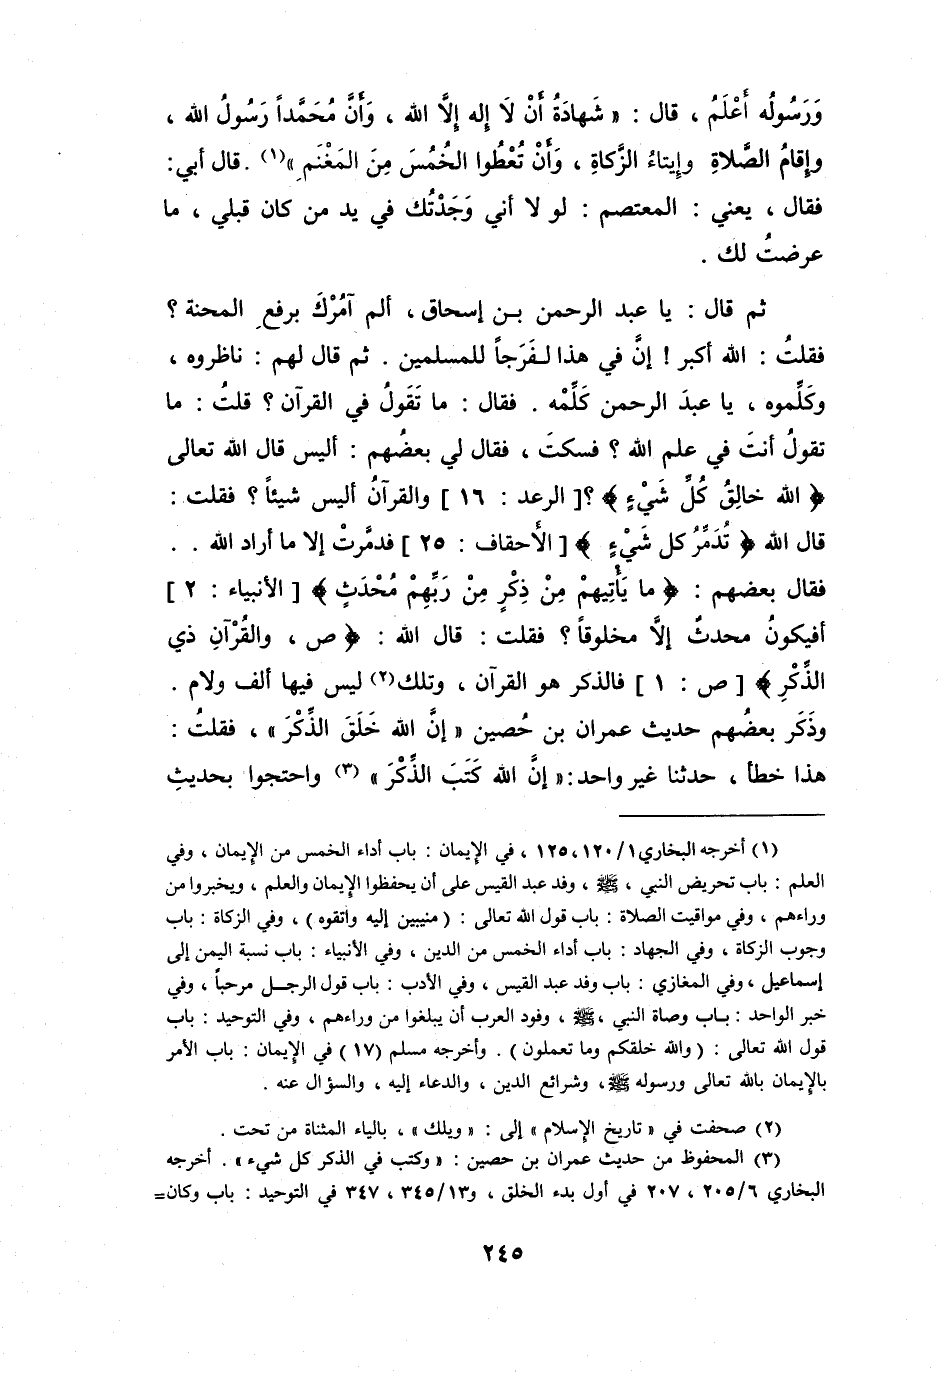 وَرَسُولُه أَعْلَمُ ، قال : « شَهادَةُ أَنْ لَا إله إلَّا الله ، وَأَنَّ مُحَمَّداً رَسُولُ الله ،
وإقامُ الصَّلاةِ وإيتاءُ الزَّكاةِ ، وَأَنْ تُعْطُوا الخُمُسَ مِنَ المَغْنَمِ »(١) . قال أبي:
فقال ، يعني : المعتصم : لو لا أني وَجَدْتُك في يد من كان قبلي ، ما
عرضتُ لك .
ثم قال : يا عبد الرحمن بن إسحاق، ألم آمُرْكَ برفعِ المحنة ؟
فقلتُ : الله أكبر ! إنَّ في هذا لفَرَجاً للمسلمين . ثم قال لهم : ناظروه ،
وكَلِّموه ، يا عبدَ الرحمن كَلِّمْه . فقال : ما تَقَولُ في القرآن ؟ قلتُ : ما
تقولُ أنتَ في علم الله ؟ فسكتَ ، فقال لي بعضُهم : أليس قال الله تعالى
﴿ الله خالِقُ كُلِّ شَيْءٍ ﴾ ؟[ الرعد : ١٦ ] والقرآنُ أليس شيئاً ؟ فقلت :
قال الله ﴿ تُدَمِّرُ كل شَيْءٍ ﴾ [ الأحقاف : ٢٥ ] فدمَّرتْ إلا ما أراد الله . .
فقال بعضهم : ﴿ ما يَأْتِيهمْ مِنْ ذِكْرٍ مِنْ رَبِّهِمْ مُحْدَثٍ ﴾ [ الأنبياء : ٢ ]
أفيكونُ محدثٌ إلَّا مخلوقاً ؟ فقلت : قال الله : ﴿ ص ، والقُرْآنِ ذي
الذِّكْرِ ﴾ [ ص : ١ ] فالذكر هو القرآن ، وتلك(٢) ليس فيها ألف ولام .
وذَكَر بعضُهم حديث عمران بن حُصين « إنَّ الله خَلَقَ الذِّكْرَ » ، فقلتُ :
هذا خطأ ، حدثنا غير واحد :« إنَّ الله كَتَبَ الذِّكْرَ » (٣) واحتجوا بحديثِ
(١) أخرجه البخاري ١/ ١٢٠، ١٢٥ ، في الإيمان : باب أداء الخمس من الإيمان ، وفي
العلم : باب تحريض النبي ، ﷺ ، وفد عبد القيس على أن يحفظوا الإيمان والعلم ، ويخبروا من
وراءهم ، وفي مواقيت الصلاة : باب قول الله تعالى : ( منيبين إليه واتقوه ) ، وفي الزكاة : باب
وجوب الزكاة ، وفي الجهاد : باب أداء الخمس من الدين ، وفي الأنبياء : باب نسبة اليمن إلى
إسماعيل ، وفي المغازي : باب وفد عبد القيس ، وفي الأدب : باب قول الرجل مرحباً ، وفي
خبر الواحد : باب وصاة النبي ، ﷺ ، وفود العرب أن يبلغوا من وراءهم ، وفي التوحيد : باب
قول الله تعالى : ( والله خلقكم وما تعملون ) . وأخرجه مسلم (١٧ ) في الإيمان : باب الأمر
بالإيمان بالله تعالى ورسوله ﷺ، وشرائع الدين ، والدعاء إليه ، والسؤال عنه .
(٢) صحفت في « تاريخ الإسلام » إلى : « ويلك » ، بالياء المثناة من تحت .
(٣) المحفوظ من حديث عمران بن حصين : « وكتب في الذكر كل شيء » . أخرجه
البخاري ٦/ ٢٠٥ ، ٢٠٧ في أول بدء الخلق ، و١٣/ ٣٤٥ ، ٣٤٧ في التوحيد : باب وكان=
٢٤٥